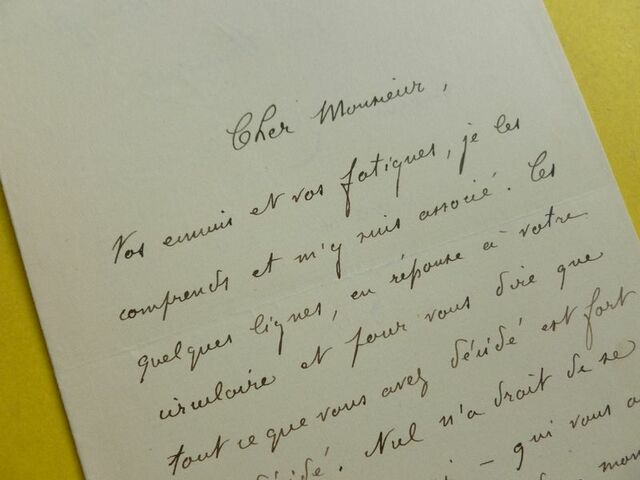 Cher Monsieur,
Vos ennuis et vos fatigues, je les
comprends et m'y suis associé. Ces
quelques lignes, en réponse à votre
circulaire et pour vous dire que
tout ce que vous avez décidé est fort
décidé. Nul n'a droit de se
– qui vous a